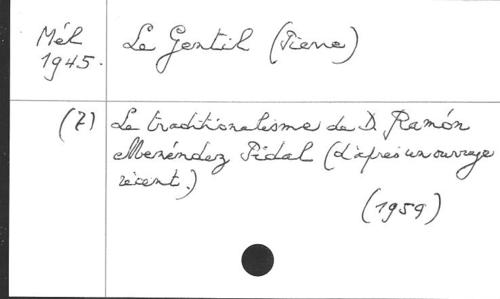 Mél Le Gentil (Pierre)
1945.
(7) Le traditionalisme de D. Ramón
Menéndez Pidal (d'après un ouvrage
récent.)
(1959)